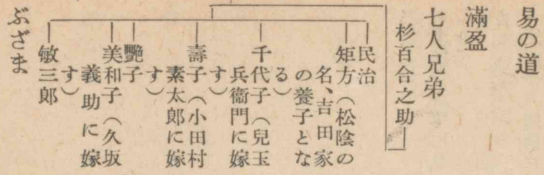 易の道
滿盈
七人兄弟
杉百合之助
民治
矩方（松陰の
名、吉田家
の養子とな
る）
千代子（兒玉
兵衞門に嫁
す）
壽子（小田村
素太郎に嫁
す）
艷子
美和子（久坂
義助に嫁
す）
敏三郎
ぶざま